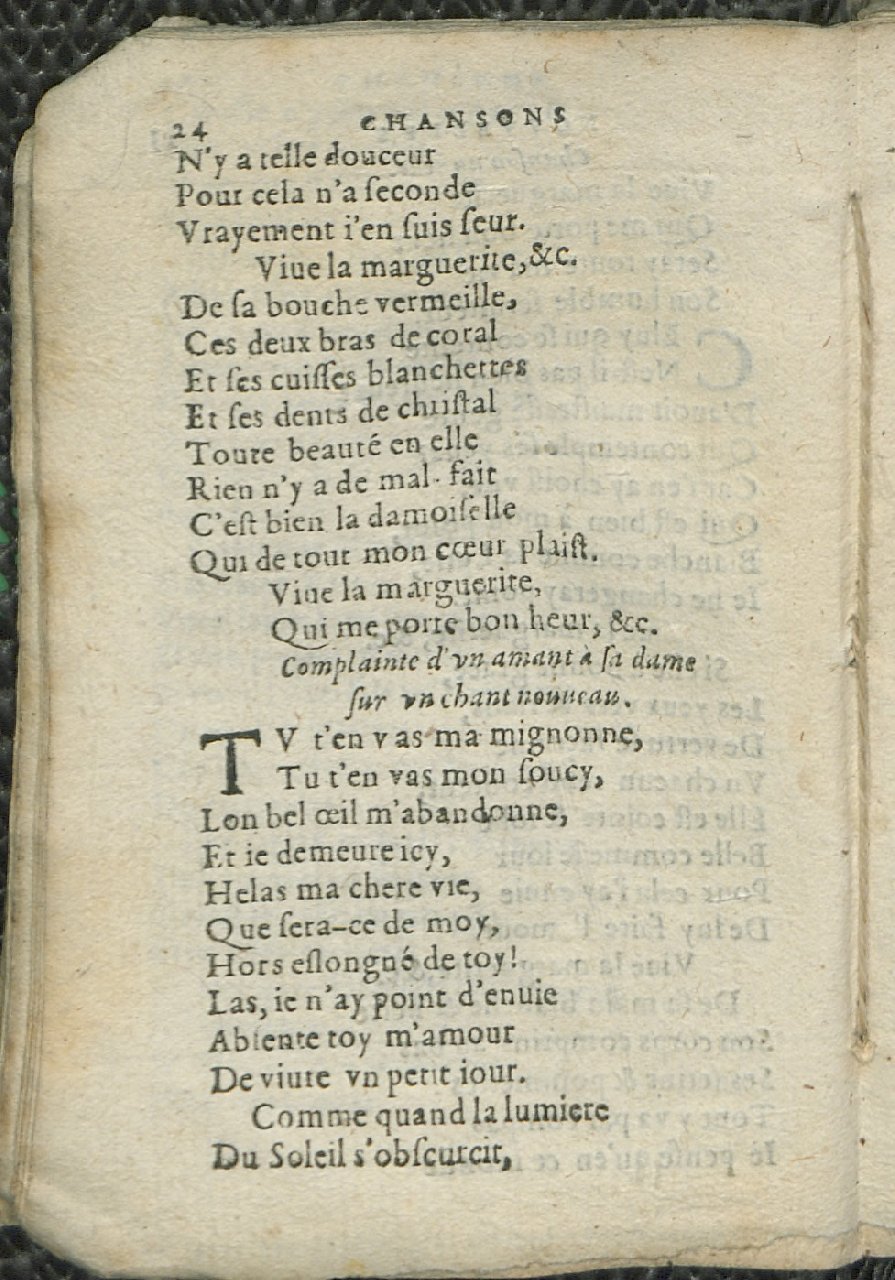 24 CHANSONS
N'y a telle douceur
Pour cela n'a ſeconde
Vrayement i'en ſuis ſeur.
Viue la marguerite, &c.
De ſa bouche vermeille,
Ces deux bras de coral
Et ſes cuiſſes blanchettes
Et ſes dents de chriſtal
Toute beauté en elle
Rien n'y a de mal-fait
C'eſt bien la damoiſelle
Qui de tout mon cœur plaiſt.
Viue la marguerite,
Qui me porte bon heur, &c.
Complainte d'vn amant à ſa dame
ſur vn chant nouueau.
TV t'en vas ma mignonne,
Tu t'en vas mon ſoucy,
Lon bel œil m'abandonne,
Et ie demeure icy,
Helas ma chere vie,
Que ſera-ce de moy,
Hors eſlongné de toy!
Las, ie n'ay point d'enuie
Abſente toy m'amour
De viure vn petit iour.
Comme quand la lumiere
Du Soleil s'obſcurcit,